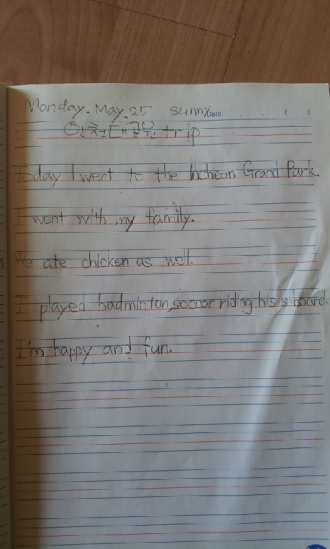 Monday. May. 25 sunny
인천대공원 trip
Today I went to the Incheon Grand Park.
I went with my family.
We ate chicken as well.
I played badminton, soccor riding his's board.
I'm happy and fun.